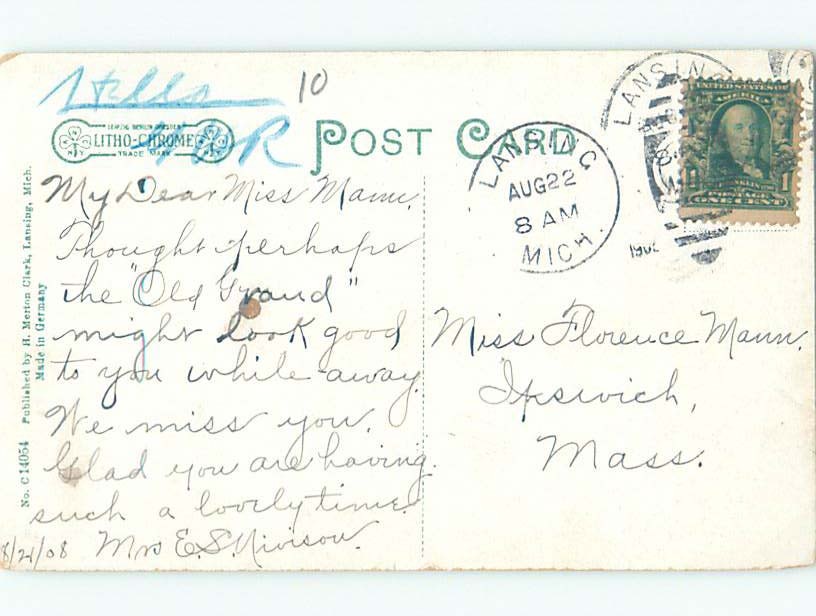 10
LEIPZIG BERLIN DRESDEN
LITHO-CHROME
TRADE MARK
POST CARD
LANSING
AUG 22
8 AM
MICH.
LANSING
UNITED STATES OF
AMERICA
FRANKLIN
1 1
ONE CENT
My Dear Miss Mann,
Thought perhaps
the "Old Grand"
might look good
to you while away.
We miss you.
Glad you are having
such a lovely time.
8/21/08 Mrs E.S.
Miss Florence Mann.
Ipswich,
Mass.
No. C 14054 Published by H. Merton Clark, Lansing, Mich.
Made in Germany